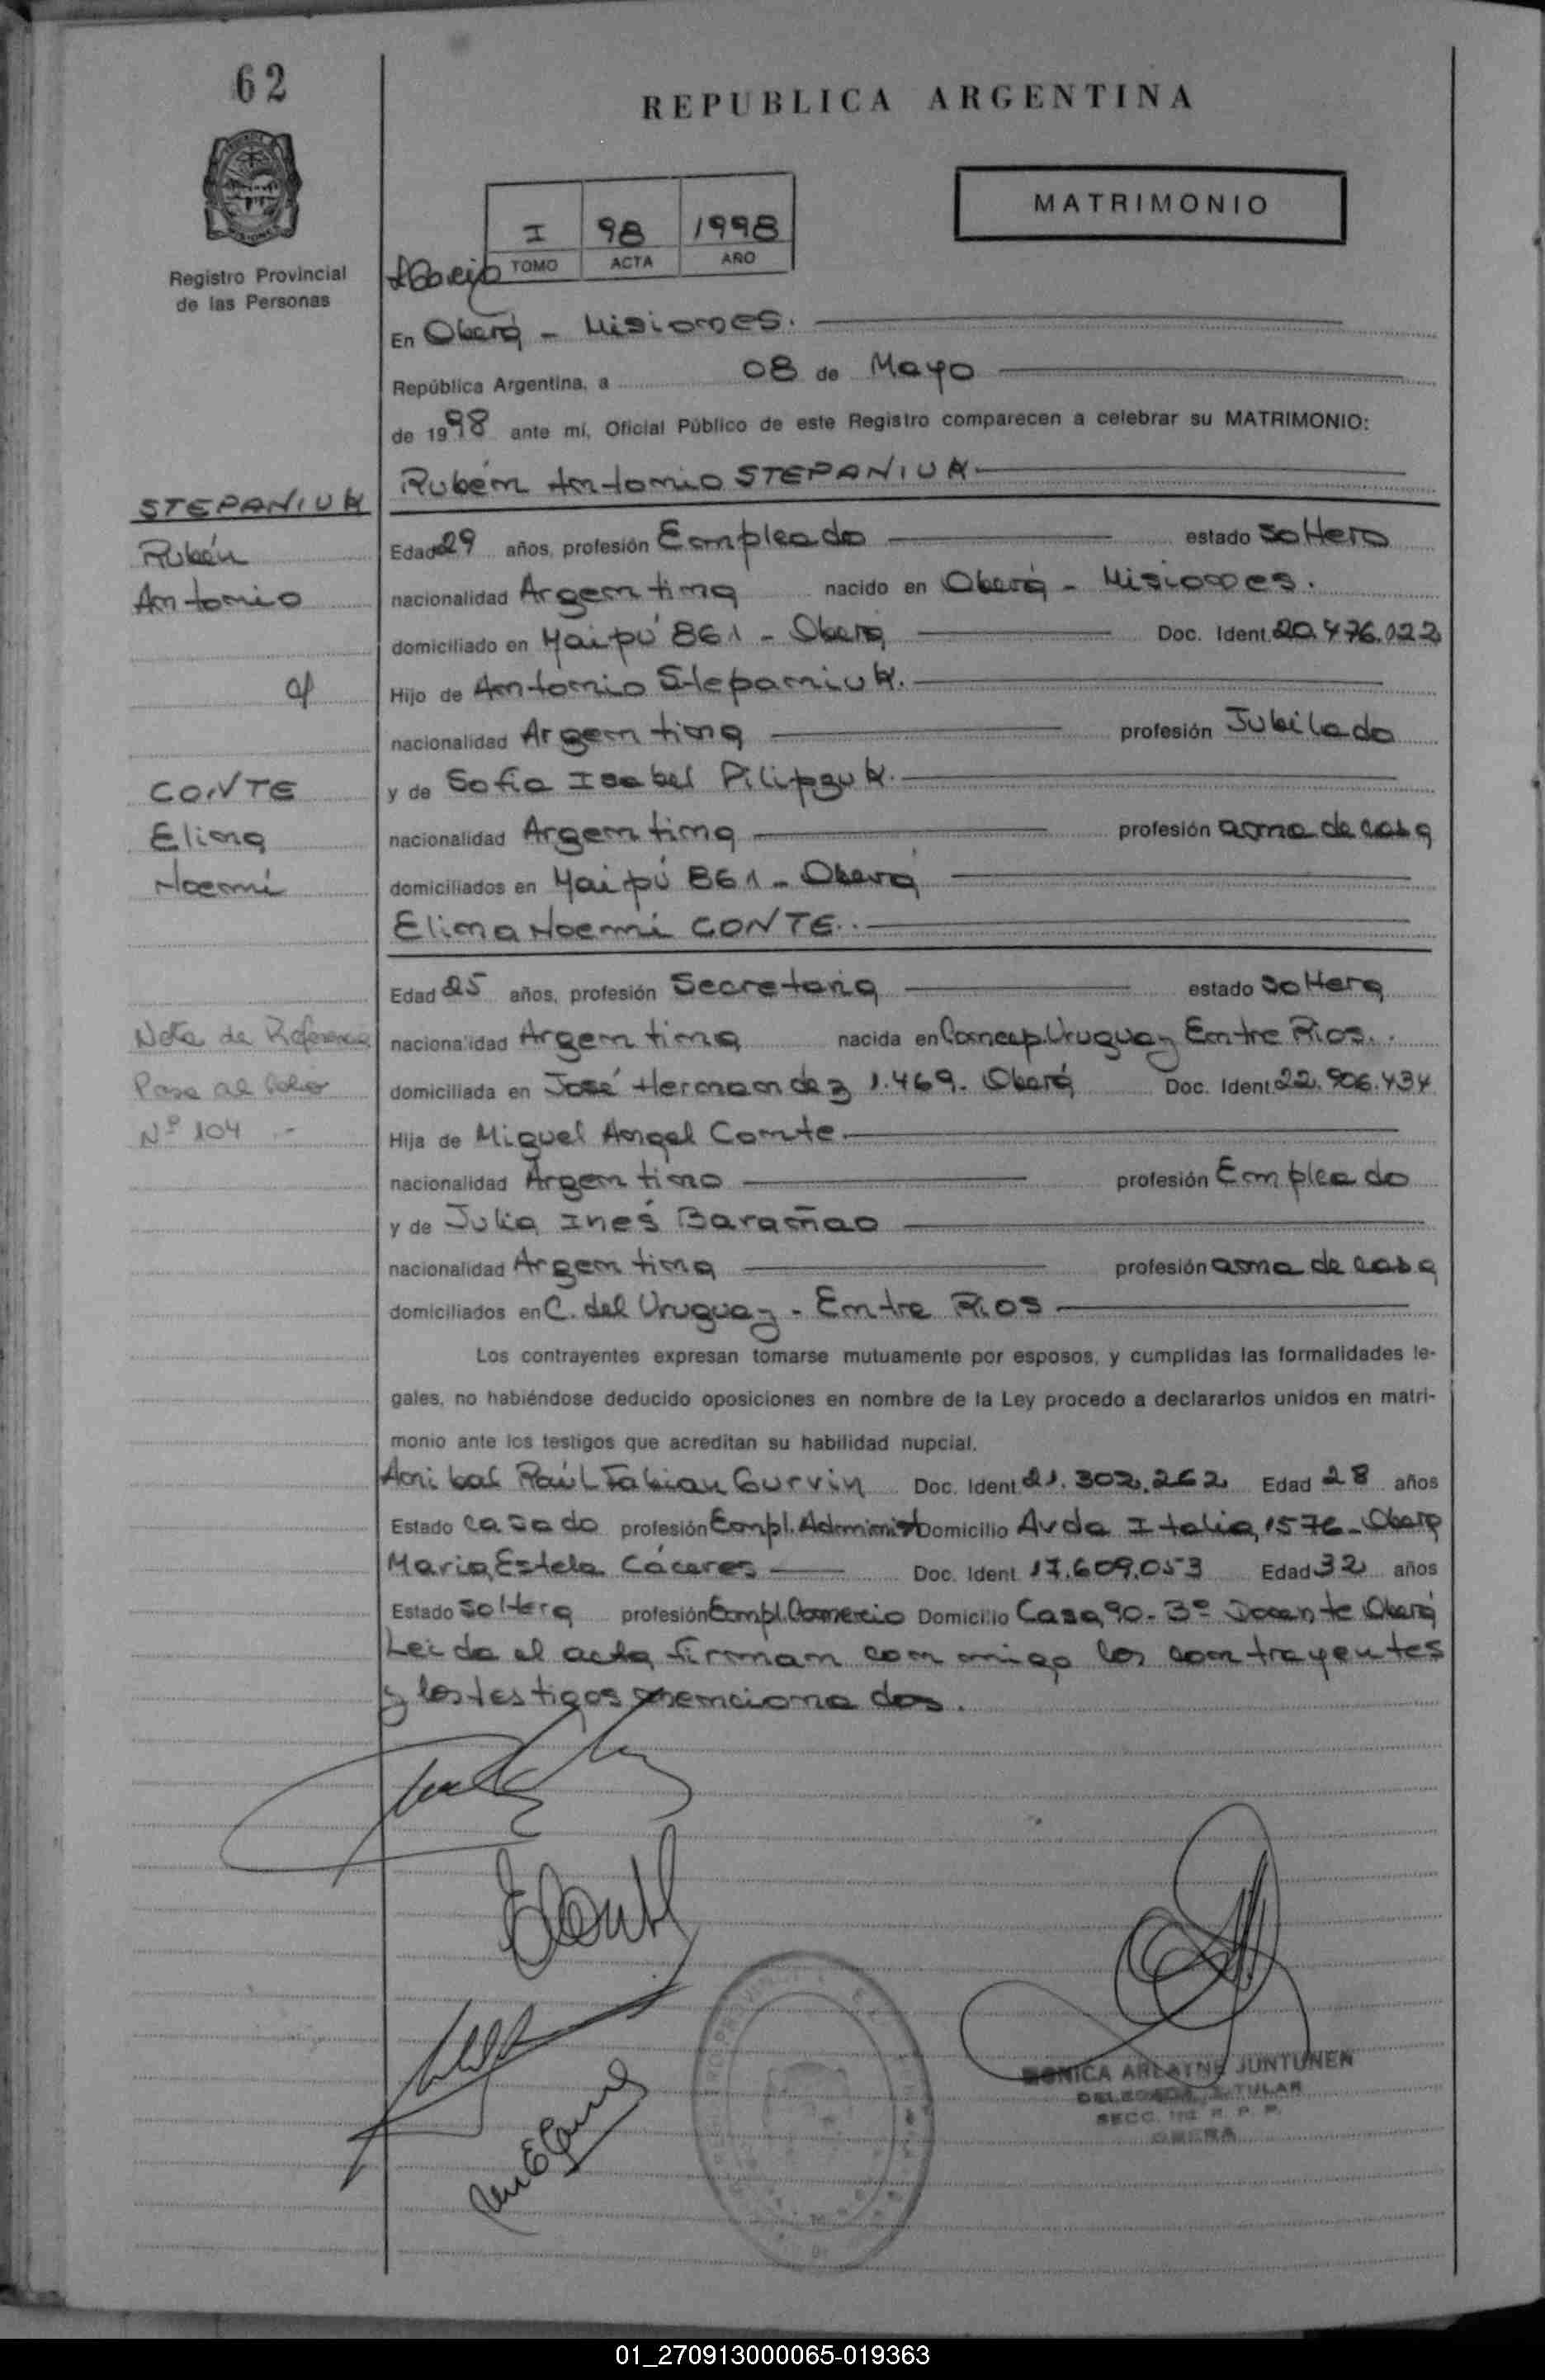 62
REPUBLICA ARGENTINA
MATRIMONIO
I 98 1998
TOMO ACTA AÑO
Registro Provincial
de las Personas
En Oberá - Misiones.
República Argentina, a 08 de Mayo
de 1998 ante mí, Oficial Público de este Registro comparecen a celebrar su MATRIMONIO:
Rubén Antonio STEPANIUK
STEPANIUK
Rubén
Antonio
c/
CONTE
Elina
Noemí
Nota de Referencia
Pasa al folio
Nº 104 .-
Edad 29 años, profesión Empleado estado soltero
nacionalidad Argentina nacido en Oberá - Misiones.
domiciliado en Maipú 861 - Oberá Doc. Ident. 20.476.022
Hijo de Antonio Stepaniuk.
nacionalidad Argentina profesión Jubilado
y de Sofia Isabel Pilipzuk.
nacionalidad Argentina profesión ama de casa
domiciliados en Maipú 861 - Oberá
Elina Noemí CONTE.
Edad 25 años, profesión Secretaria estado soltera
nacionalidad Argentina nacida en Concep. Uruguay Entre Rios.
domiciliada en José Hernandez 1.469. Oberá Doc. Ident 22.906.434
Hija de Miguel Angel Conte.
nacionalidad Argentino profesión Empleado
y de Julia Inés Barañao
nacionalidad Argentina profesión ama de casa
domiciliados en C. del Uruguay - Entre Rios
Los contrayentes expresan tomarse mutuamente por esposos, y cumplidas las formalidades le-
gales, no habiéndose deducido oposiciones en nombre de la Ley procedo a declararlos unidos en matri-
monio ante los testigos que acreditan su habilidad nupcial.
Anibal Raúl Fabian Gurvin Doc. Ident 21.302.262 Edad 28 años
Estado casado profesión Empl. Administ Domicilio Avda Italia, 1576 - Oberá
Maria Estela Cáceres Doc. Ident 17.609.053 Edad 32 años
Estado soltera profesión Empl. Comercio Domicilio Casa 90 - 3º Docente Oberá
Leida el acta firman conmigo los contrayentes
y los testigos mencionados.
MONICA ARLAYNE JUNTUNEN
DELEGADA TITULAR
SECC. R. P. P.
OBERA
01_270913000065-019363